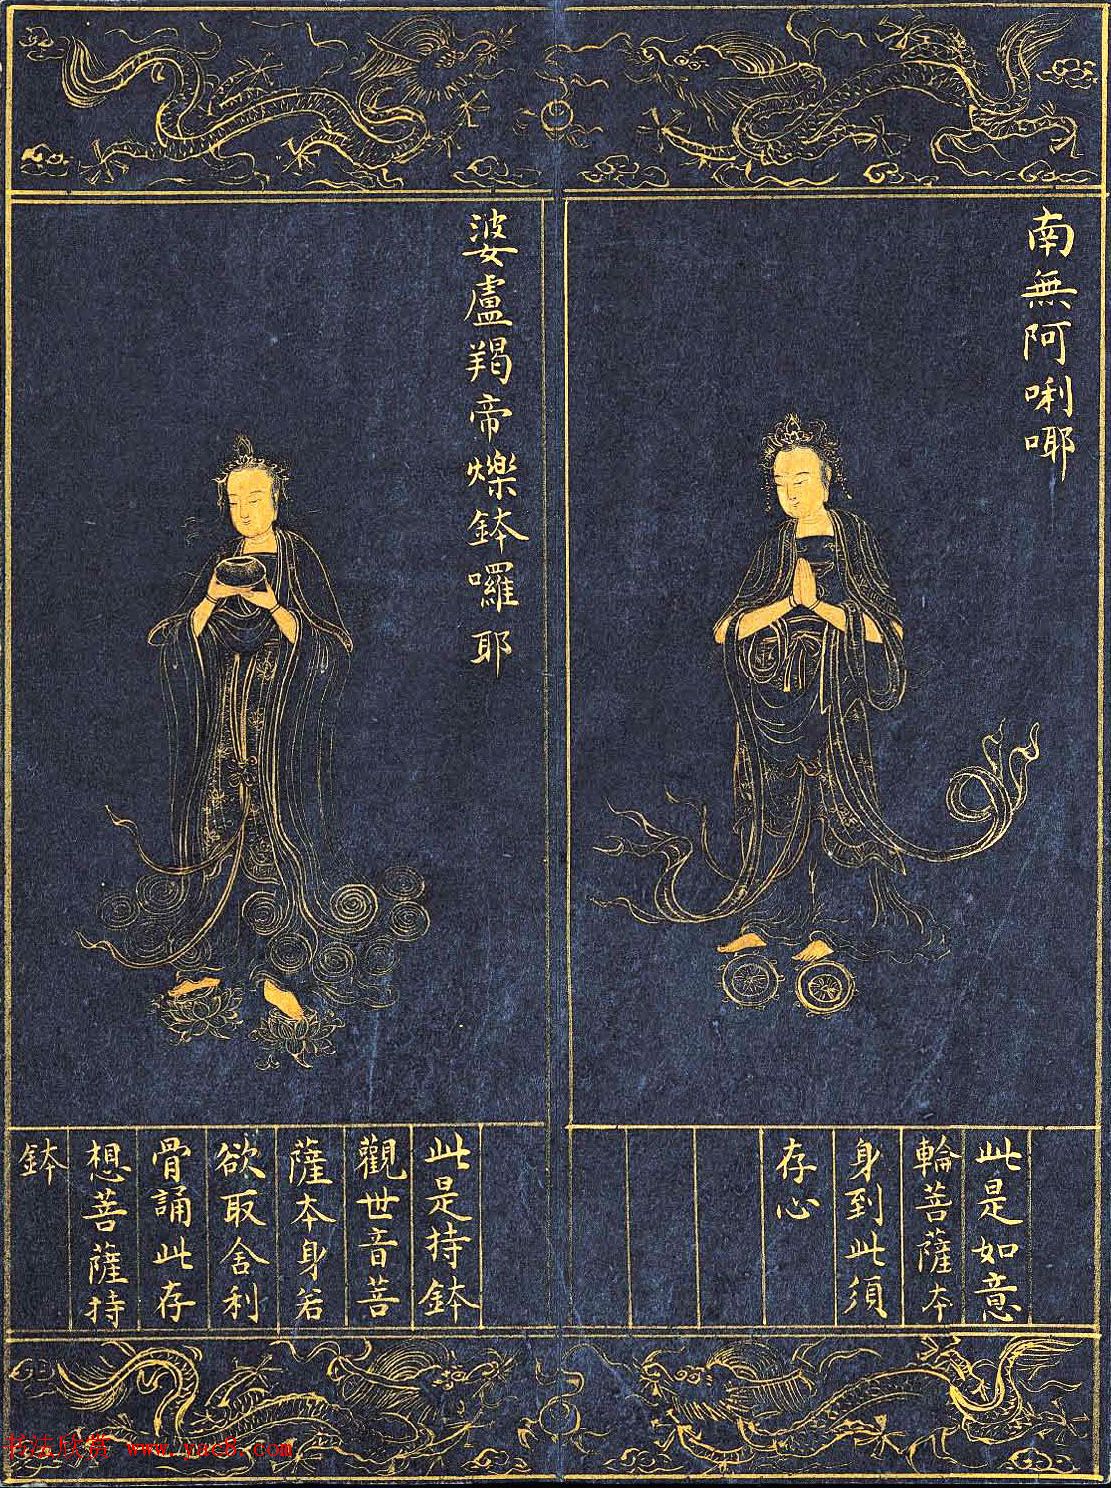 南無阿唎㖿
此是如意
輪菩薩本
身到此須
存心
婆盧羯帝爍鉢囉耶
此是持鉢
觀世音菩
薩本身若
欲取舍利
骨誦此存
想菩薩持
鉢
书法欣赏 www.yac8.com